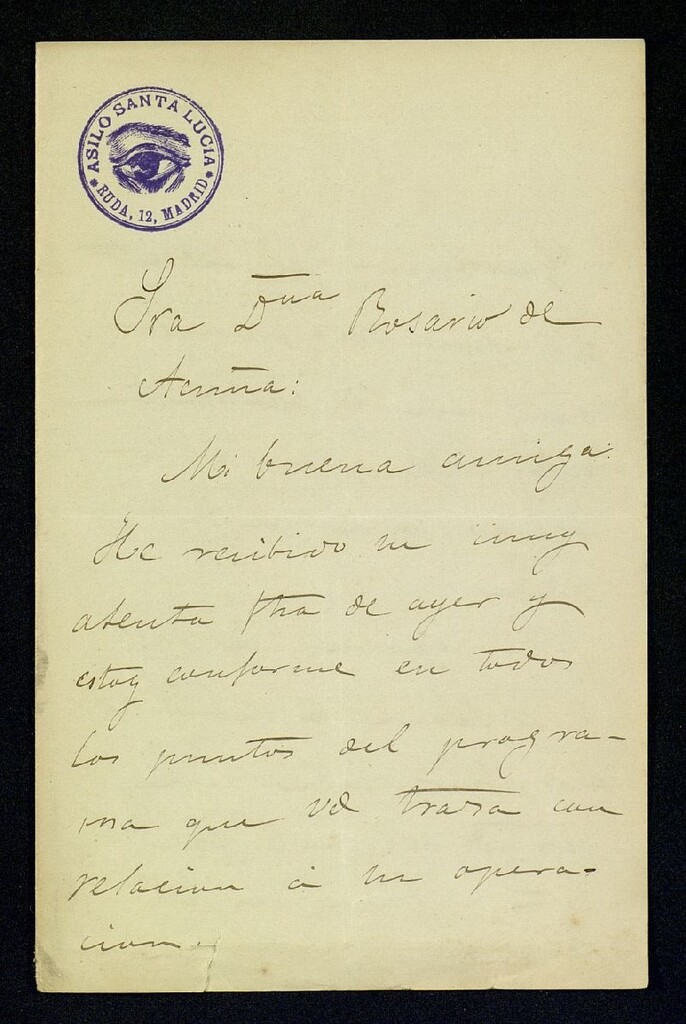 ASILO SANTA LUCIA
RUDA, 12, MADRID
Sra Dña Rosario de
Acuña:
Mi buena amiga:
He recibido su muy
atenta fha de ayer y
estoy conforme en todos
los puntos del progra-
ma que Vd traza con
relacion á su opera-
cion.